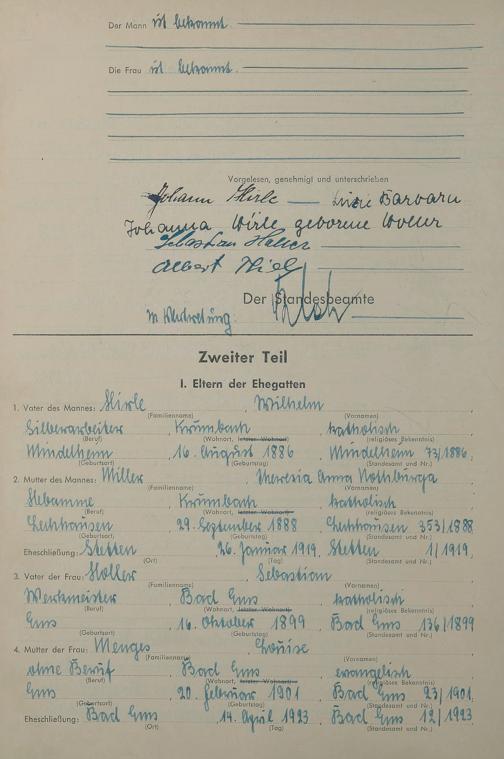 Der Mann ist bekannt.
Die Frau ist bekannt.
Vorgelesen, genehmigt und unterschrieben
Johann Hirle — Luzie Barbara
Johanna Hirle geborene Holler
Sebastian Holler
Albert Thiel
Der Standesbeamte
In Vertretung:
Zweiter Teil
I. Eltern der Ehegatten
1. Vater des Mannes: Hirle, Wilhelm
(Familienname) (Vornamen)
Silberarbeiter, Krumbach, katholisch
(Beruf) (Wohnort, letzter Wohnort) (religiöses Bekenntnis)
Mindelheim, 16. August 1886, Mindelheim 73/1886,
(Geburtsort) (Geburtstag) (Standesamt und Nr.)
2. Mutter des Mannes: Miller, Theresia Anna Nothburga
(Familienname) (Vornamen)
Hebamme, Krumbach, katholisch
(Beruf) (Wohnort, letzter Wohnort) (religiöses Bekenntnis)
Lechhausen, 29. September 1888, Lechhausen 353/1888
(Geburtsort) (Geburtstag) (Standesamt und Nr.)
Eheschließung: Stetten, 26. Januar 1919, Stetten 1/1919,
(Ort) (Tag) (Standesamt und Nr.)
3. Vater der Frau: Holler, Sebastian
(Familienname) (Vornamen)
Werkmeister, Bad Ems, katholisch
(Beruf) (Wohnort, letzter Wohnort) (religiöses Bekenntnis)
Ems, 16. Oktober 1899, Bad Ems 136/1899
(Geburtsort) (Geburtstag) (Standesamt und Nr.)
4. Mutter der Frau: Menges, Louise
(Familienname) (Vornamen)
ohne Beruf, Bad Ems, evangelisch
(Beruf) (Wohnort, letzter Wohnort) (religiöses Bekenntnis)
Ems, 20. Februar 1901, Bad Ems 23/1901,
(Geburtsort) (Geburtstag) (Standesamt und Nr.)
Eheschließung: Bad Ems, 14. April 1923, Bad Ems 12/1923
(Ort) (Tag) (Standesamt und Nr.)